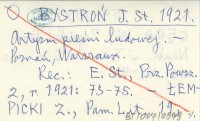 BYSTROŃ J. St. 1921.
Artyzm pieśni ludowej. —
Poznań, Warszawa.
Rec.: E. St., Prz. Powsz.
2, r. 1921: 73-75. — ŁEM-
PICKI Z., Pam. Lit. 19